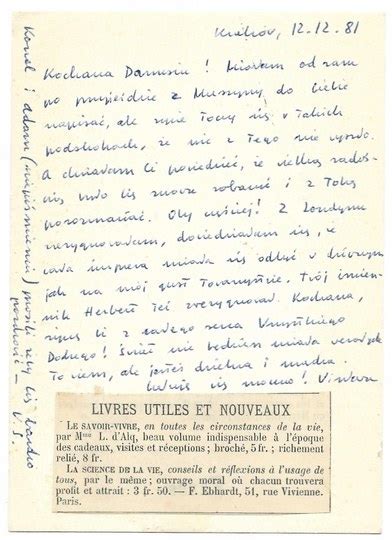 Kraków, 12.12.81
Kochana Danusiu! Miałam od razu
po przyjeździe z Muszyny do Ciebie
napisać, ale życie toczy się w takich
podskokach, że nic z tego nie wyszło.
A chciałam Ci powiedzieć, że wielką radoś-
cią było Cię znowu zobaczyć i z Tobą
porozmawiać. Oby częściej! Z Londynu
zrezygnowałam, dowiedziałam się, że
cała impreza miała się odbyć w dziwnym
jak na mój gust towarzystwie. Twój imien-
nik Herbert też zrezygnował. Kochana,
życzę Ci z całego serca Wszystkiego
Dobrego! Świąt nie będziesz miała wesołych
To wiem, ale jesteś dzielna i mądra.
Ściskam Cię mocno! Wisława
Kornel i Adam (najpiśmienniej) prosili żeby Cię bardzo
pozdrowić – W.S.
LIVRES UTILES ET NOUVEAUX
LE SAVOIR-VIVRE, en toutes les circonstances de la vie,
par Mme L. d'Alq, beau volume indispensable à l'époque
des cadeaux, visites et réceptions; broché, 5 fr.; richement
relié, 8 fr.
LA SCIENCE DE LA VIE, conseils et réflexions à l'usage de
tous, par le même; ouvrage moral où chacun trouvera
profit et attrait : 3 fr. 50. — F. Ebhardt, 51, rue Vivienne.
Paris.